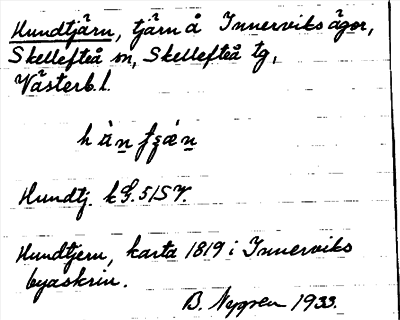 Hundtjärn, tjärn å Innerviks ägor,
Skellefteå sn, Skellefteå tg,
Västerb. l.
Hundtj. kG. 51SV.
Hundtjern, karta 1819 i Innerviks
byaskrin.
B. Nygren 1933.